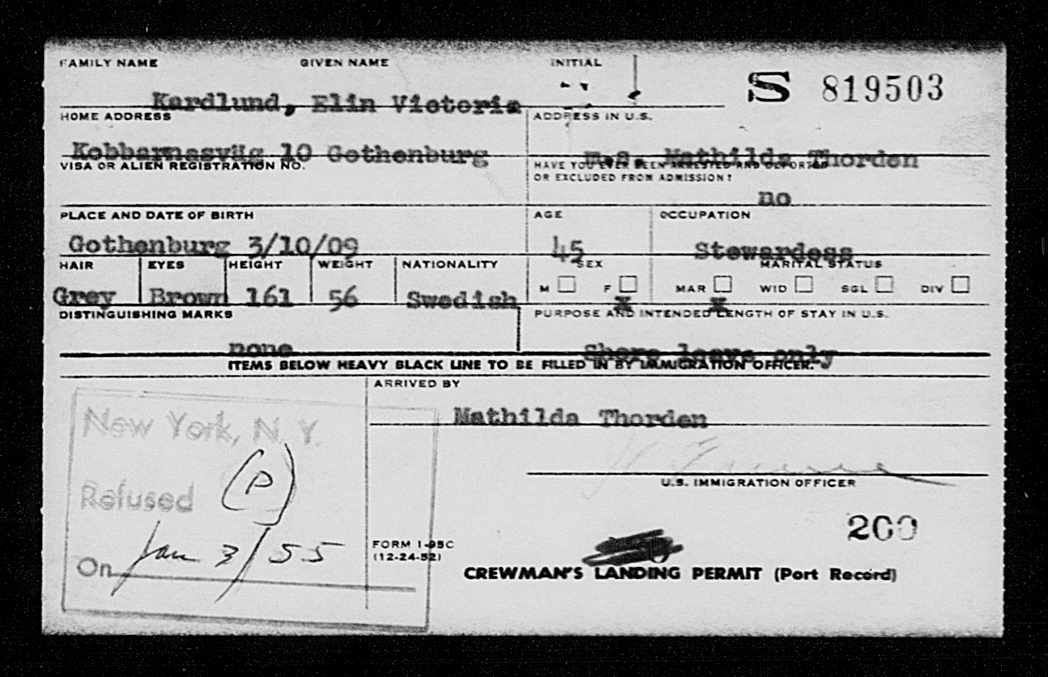 FAMILY NAME GIVEN NAME INITIAL
S 819503
Kardlund, Elin Victoria
HOME ADDRESS ADDRESS IN U.S.
Kobbarnasväg 10 Gothenburg m.s. Mathilda Thorden
VISA OR ALIEN REGISTRATION NO. HAVE YOU EVER BEEN ARRESTED AND DEPORTED
OR EXCLUDED FROM ADMISSION?
no
PLACE AND DATE OF BIRTH AGE OCCUPATION
Gothenburg 3/10/09 45 Stewardess
HAIR EYES HEIGHT WEIGHT NATIONALITY SEX MARITAL STATUS
M F x MAR x WID SGL DIV
Grey Brown 161 56 Swedish
DISTINGUISHING MARKS PURPOSE AND INTENDED LENGTH OF STAY IN U.S.
none Shore leave only
ITEMS BELOW HEAVY BLACK LINE TO BE FILLED IN BY IMMIGRATION OFFICER.
ARRIVED BY
Mathilda Thorden
New York, N. Y.
U.S. IMMIGRATION OFFICER
Refused (P)
200
On Jan 3/55
FORM I-95C
(12-24-52)
CREWMAN'S LANDING PERMIT (Port Record)